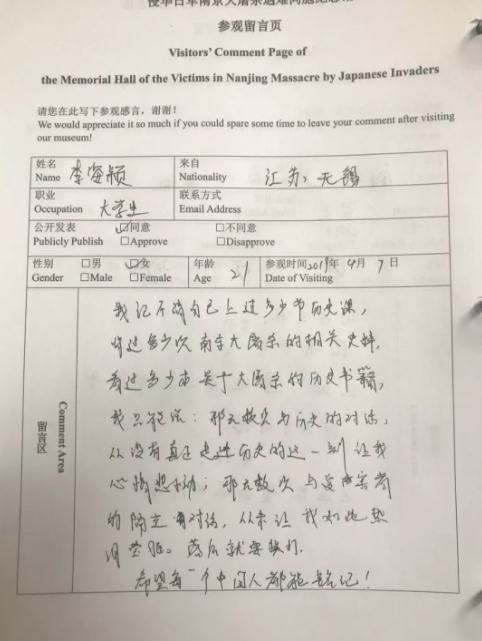 参观留言页
Visitors' Comment Page of
the Memorial Hall of the Victims in Nanjing Massacre by Japanese Invaders
请您在此写下参观感言，谢谢！
We would appreciate it so much if you could spare some time to leave your comment after visiting
our museum!
姓名 来自
Name 李姿颖 Nationality 江苏，无锡
职业 联系方式
Occupation 大学生 Email Address
公开发表 ☑同意 □不同意
Publicly Publish □Approve □Disapprove
性别 □男 ☑女 年龄 参观时间2019年4月7日
Gender □Male □Female Age 21 Date of Visiting
留言区 Comment Area
我记不清自己上过多少节历史课，
听过多少次南京大屠杀的相关史料，
看过多少本关于大屠杀的历史书籍，
我只能说：那无数次与历史的对话，
从没有真正走进历史的这一刻让我
心情悲恸；那无数次与受害者
的隔空对话，从未让我如此热
泪盈眶。落后就要挨打。
希望每一个中国人都能铭记！